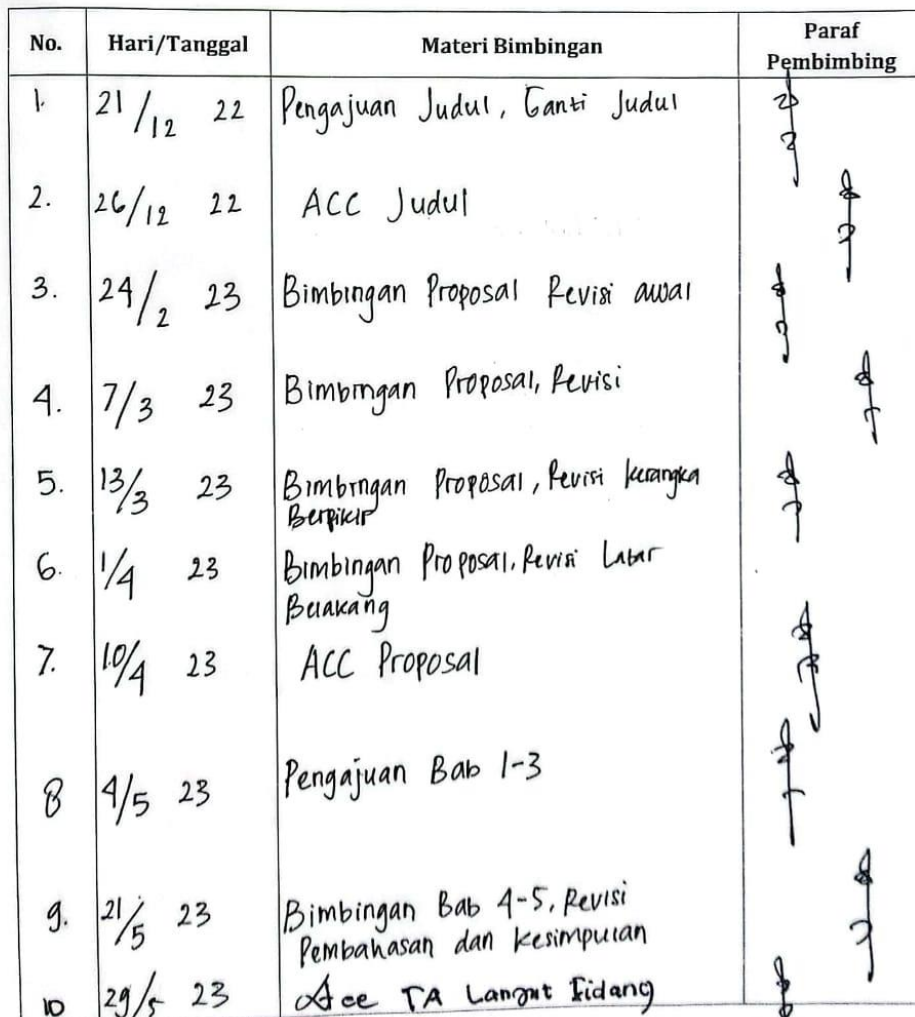 No. Hari/Tanggal Materi Bimbingan Paraf
Pembimbing
1. 21/12 22 Pengajuan Judul, Ganti Judul
2. 26/12 22 ACC Judul
3. 24/2 23 Bimbingan Proposal Revisi awal
4. 7/3 23 Bimbingan Proposal, Revisi
5. 13/3 23 Bimbingan Proposal, Revisi kerangka
Berpikir
6. 1/4 23 Bimbingan Proposal, Revisi Latar
Belakang
7. 10/4 23 ACC Proposal
8 4/5 23 Pengajuan Bab 1-3
9. 21/5 23 Bimbingan Bab 4-5, Revisi
Pembahasan dan kesimpulan
10 29/5 23 Acc TA Lanjut Sidang